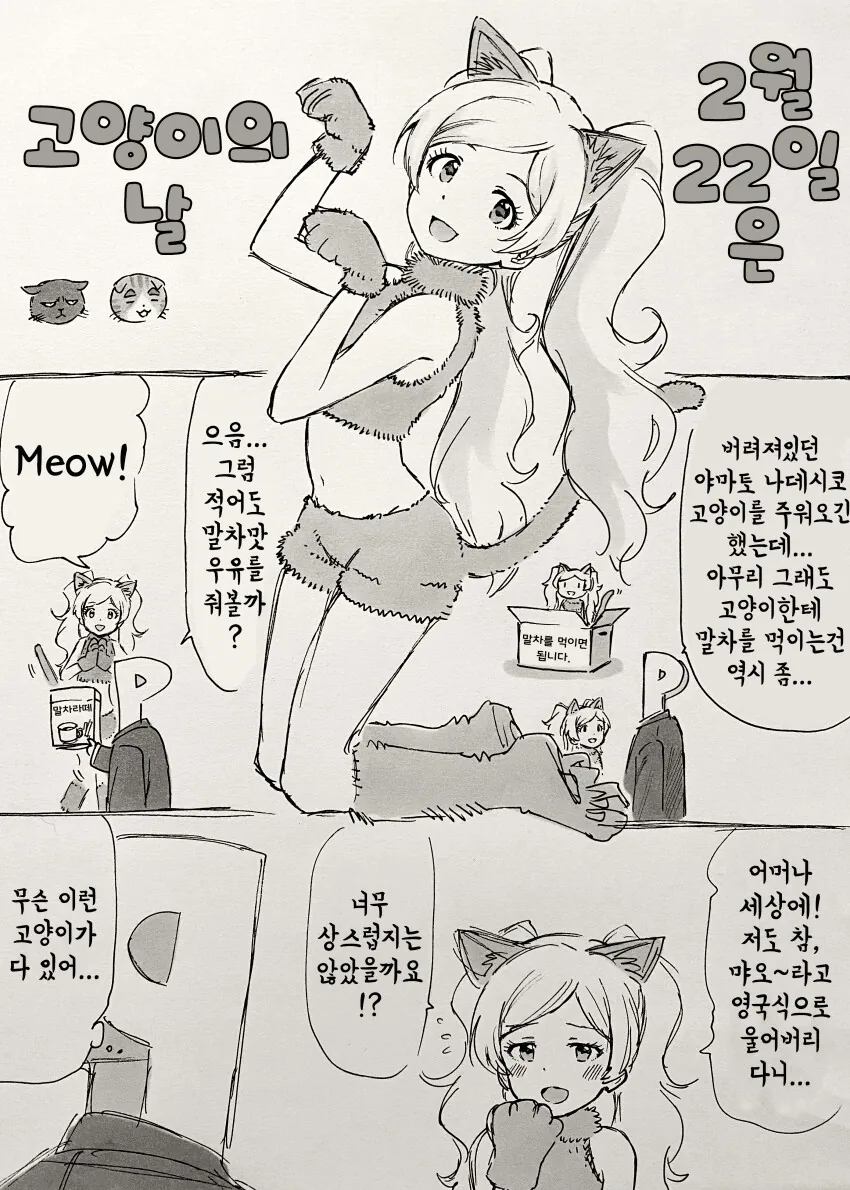 2월
22일
은
고양이의
날
버려져있던
야마토 나데시코
고양이를 주워오긴
했는데...
아무리 그래도
고양이한테
말차를 먹이는건
역시 좀...
말차를 먹이면
됩니다.
P
으음...
그럼
적어도
말차맛
우유를
줘볼까
?
Meow!
P
말차라떼
어머나
세상에!
저도 참,
먀오~라고
영국식으로
울어버리
다니...
너무
상스럽지는
않았을까요
!?
무슨 이런
고양이가
다 있어...